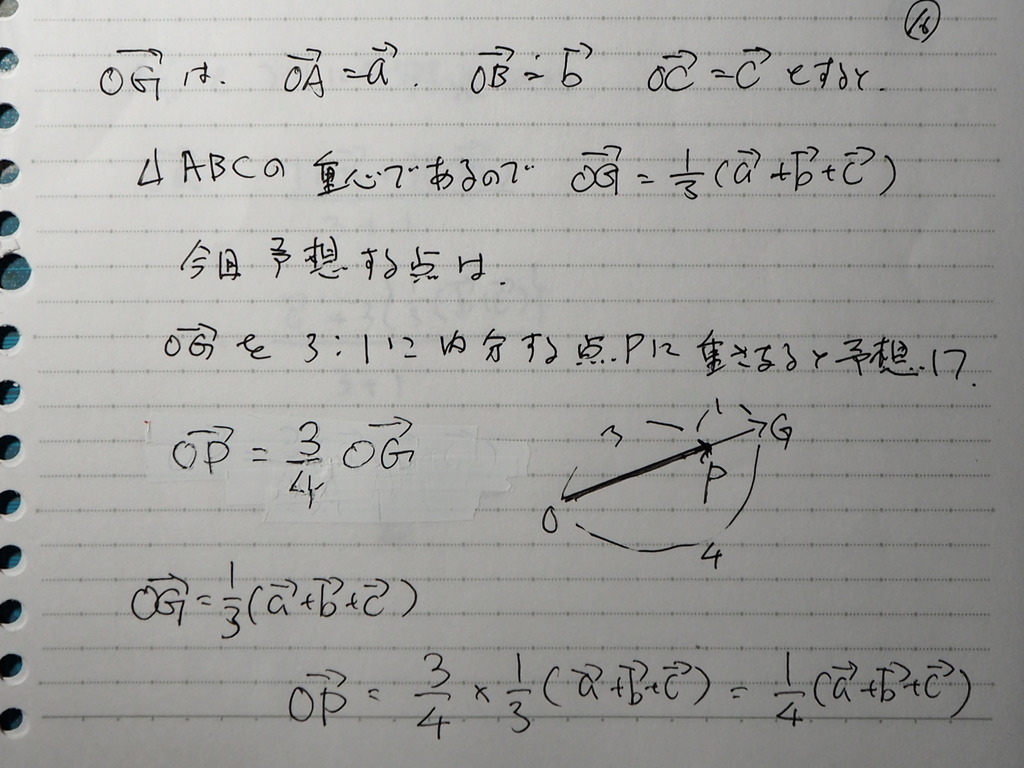 ⑯
→OGは. →OA=→a. →OB=→b →OC=→c とすると.
△ABCの重心であるので →OG=1/3(→a+→b+→c)
今回予想する点は.
→OGを3:1に内分する点Pに重さなると予想.
→OP=3/4 →OG
3 1 G
P
O
4
→OG=1/3(→a+→b+→c)
→OP=3/4×1/3(→a+→b+→c)=1/4(→a+→b+→c)